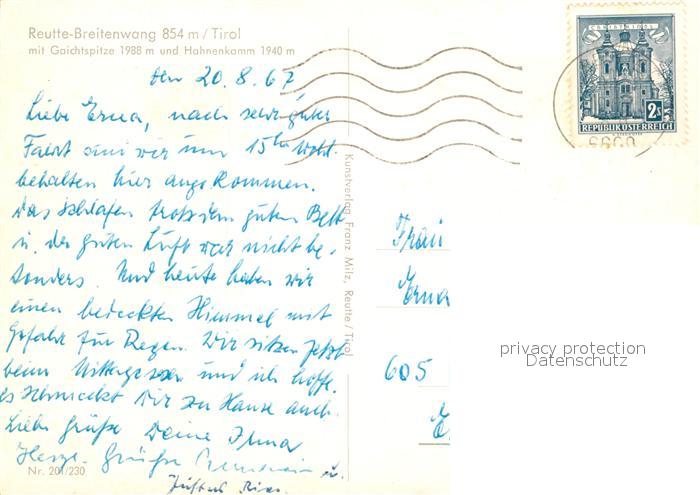 Reutte-Breitenwang 854 m / Tirol
mit Gaichtspitze 1988 m und Hahnenkamm 1940 m
den 20. 8. 67
Liebe Erna, nach sehr guter
Fahrt sind wir um 15 Uhr wohl-
behalten hier angekommen.
Das Schlafen trotz dem guten Bett
u. der guten Luft war nicht be-
sonders. Und heute haben wir
einen bedeckten Himmel mit
Gefahr für Regen. Wir sitzen jetzt
beim Mittagessen und ich hoffe,
es schmeckt Dir zu Hause auch.
Liebe Grüße Deine Irma
Herzl. Grüße
u.
Nr. 201/230
Kunstverlag Franz Milz, Reutte/Tirol
CHRISTKINDL
2S
REPUBLIK ÖSTERREICH
6600
Frau
Erna
605
privacy protection
Datenschutz